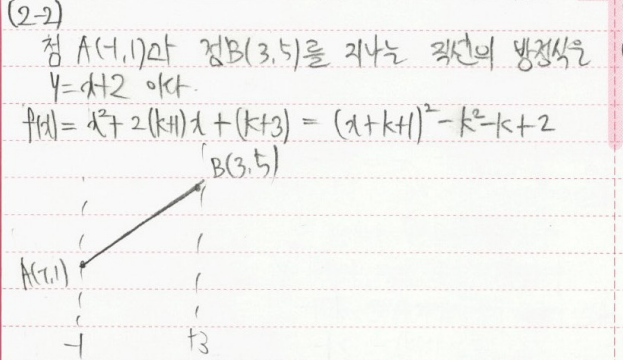 (2-2)
점 A(-1,1)과 점B(3,5)를 지나는 직선의 방정식은
y=x+2 이다.
f(x)= x²+2(k+1)x+(k+3) = (x+k+1)²-k²-k+2
B(3,5)
A(-1,1)
-1 +3